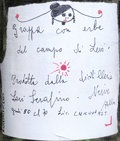 Grappa con erbe
del campo di Levi.
Prodotta dalla Distilleria
Levi Serafino - Neive
Alba